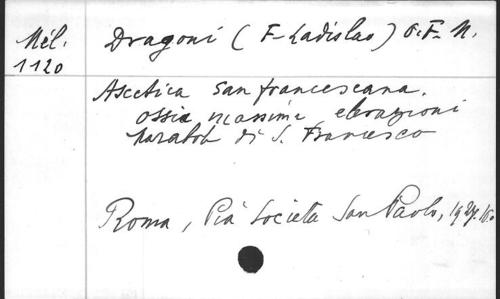 Mél.
1120
Dragoni (F. Ladislao) O.F.M.
Ascetica San francescana.
ossia massime elevazioni
di S. Francesco
Roma, Pia Società San Paolo, 1927. 16o